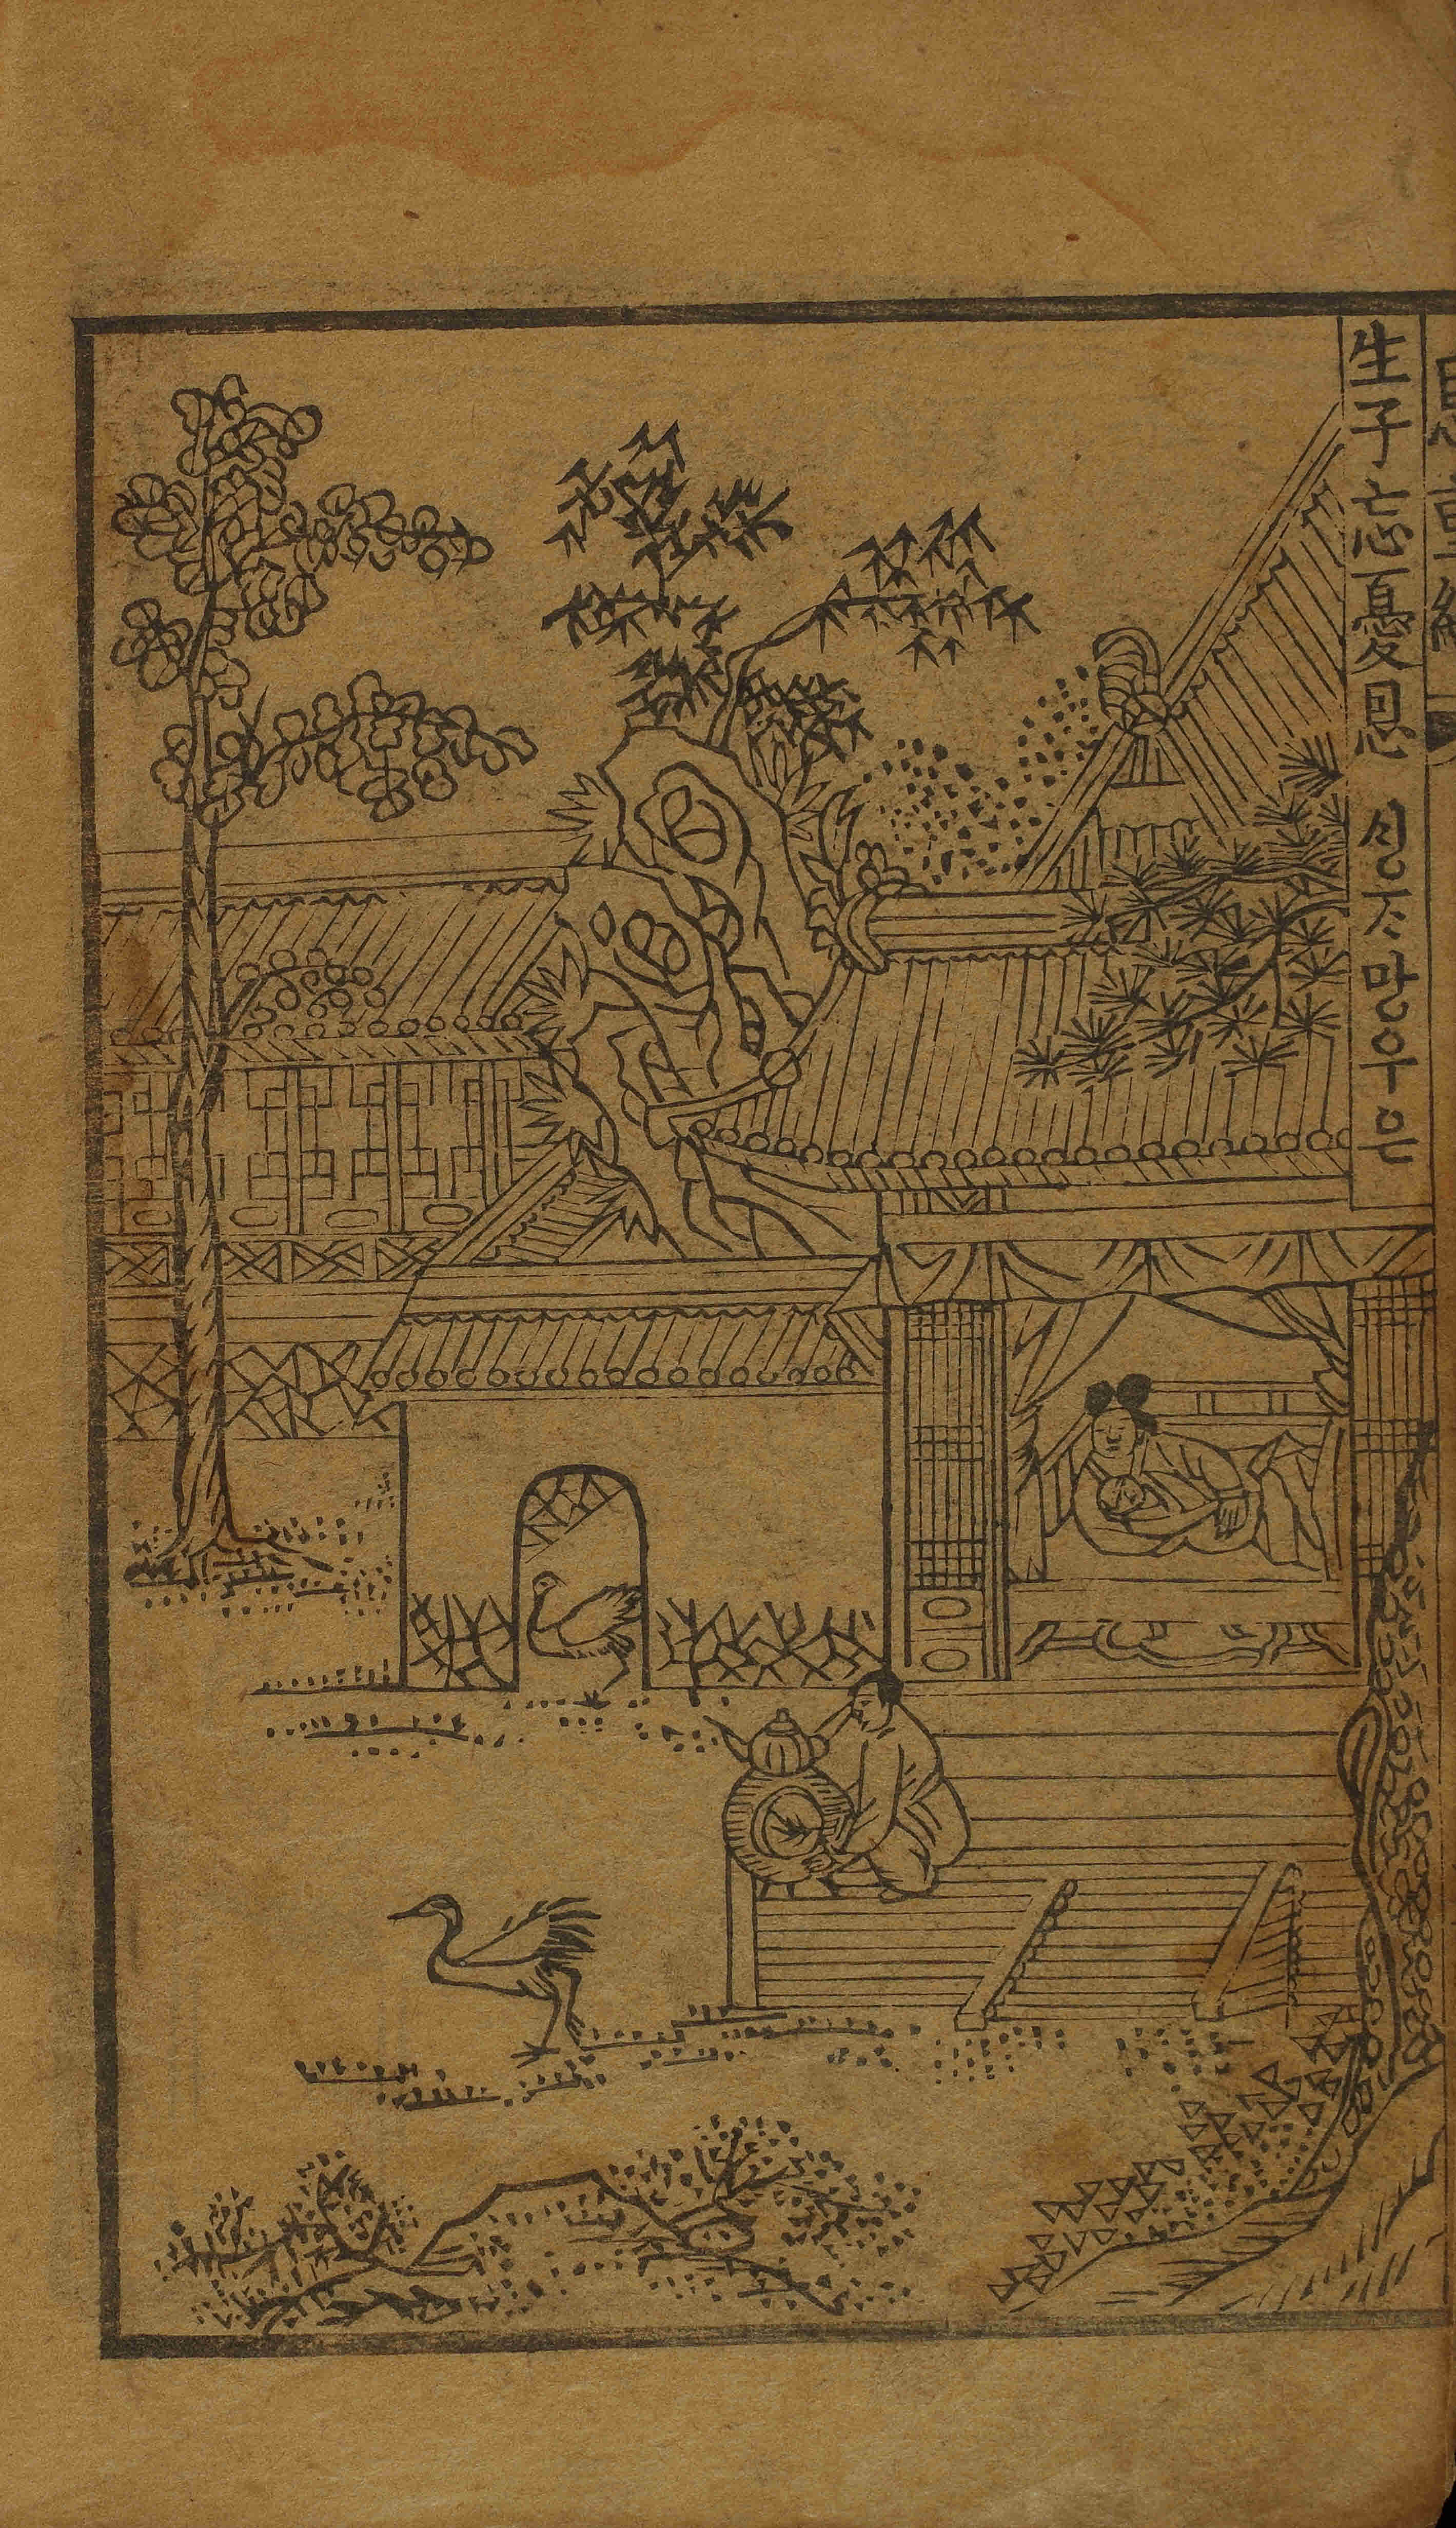 生子忘憂恩 싱ᄌᆞ망우은